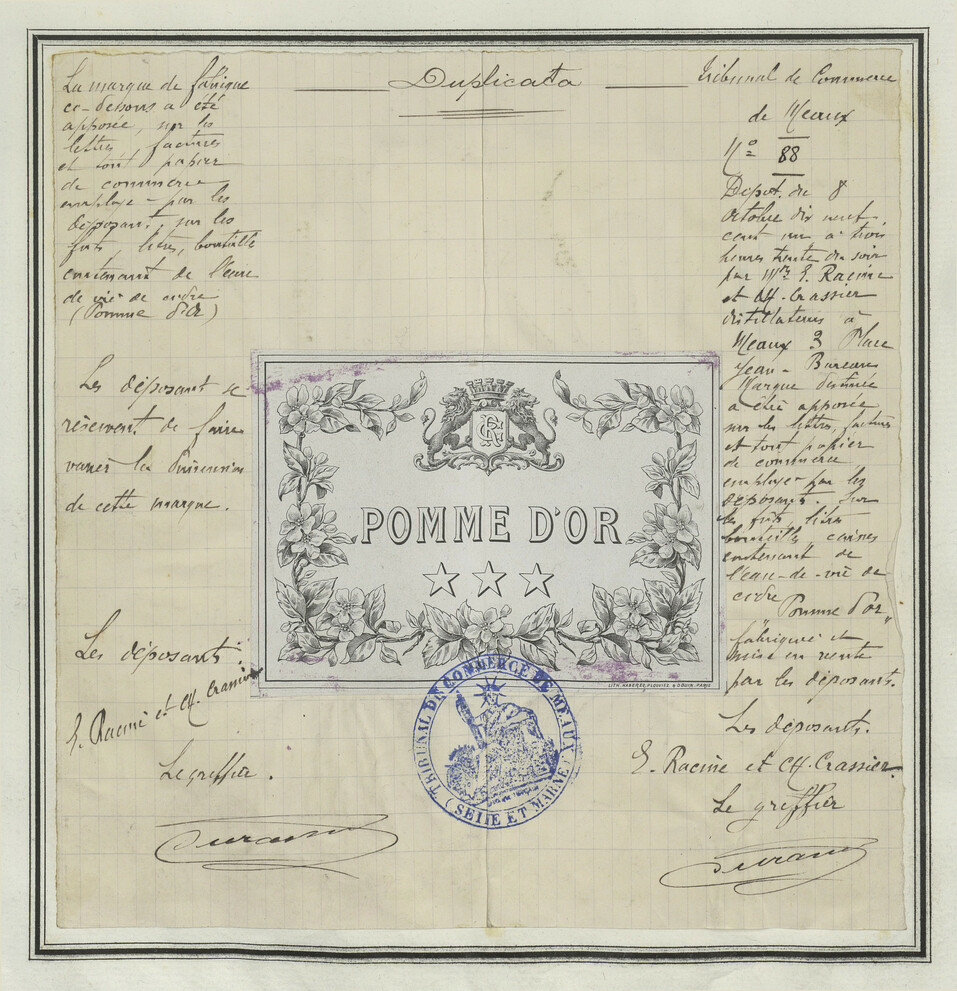 Duplicata
La marque de fabrique
ci-dessous a été
apposée, sur les
lettres factures
et tout papier
de commerce
employé par les
déposant, sur les
futs, litres, bouteille
contenant de l'eau
de vie de cidre
(Pomme d'Or)
Les déposant se
réservent de faire
varier les Dimension
de cette marque.
Les déposants
E. Racine et Ch. Crassier
Le greffier.
Durand
POMME D'OR
LITH. PLOUVIEZ PARIS
TRIBUNAL DE COMMERCE DE MEAUX
(SEINE ET MARNE)
Tribunal de Commerce
de Meaux
N° 88
Dépot du 8
Octobre dix neuf
cent un à trois
heures trente du soir
par Mrs E. Racine
et Ch. Crassier
distillateurs à
Meaux 3 Place
Jean-Bureau
Marque destinée
a être apposée
sur les lettres, factures
et tout papier
de commerce
employé par les
déposants. Sur
les futs, litres
bouteille caisses
contenant de
l'eau-de-vie de
cidre "Pomme d'or"
fabriqué et
mise en vente
par les déposants.
Les déposants.
E. Racine et Ch. Crassier
Le greffier
Durand